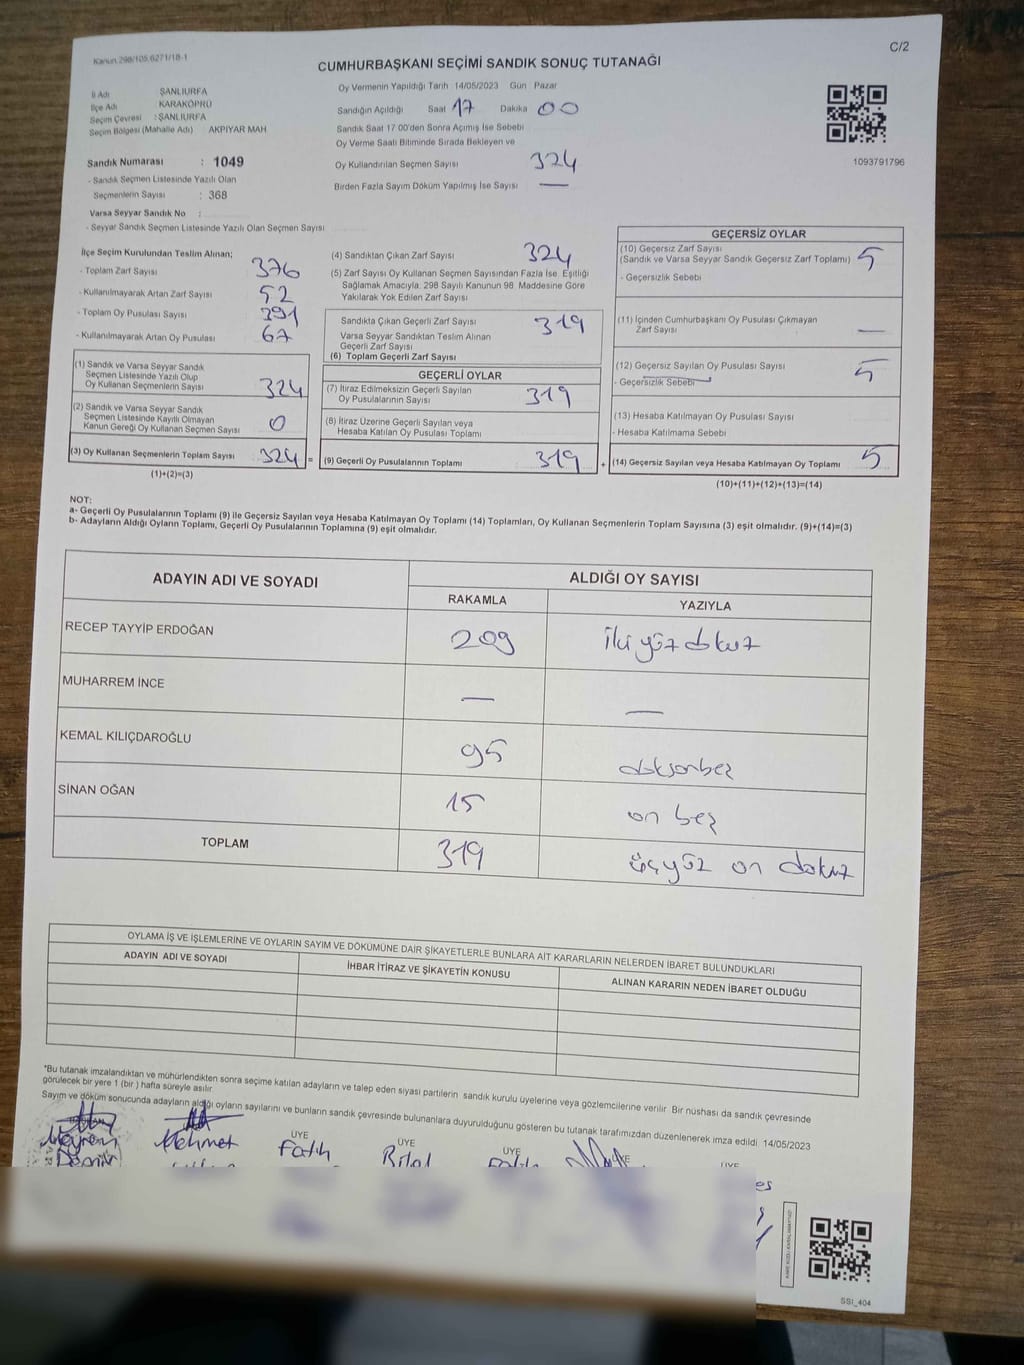 Kanun.298/105,6271/18-1
C/2
CUMHURBAŞKANI SEÇİMİ SANDIK SONUÇ TUTANAĞI
İl Adı ŞANLIURFA
İlçe Adı : KARAKÖPRÜ
Seçim Çevresi : ŞANLIURFA
Seçim Bölgesi (Mahalle Adı) AKPIYAR MAH
Sandık Numarası : 1049
- Sandık Seçmen Listesinde Yazılı Olan
Seçmenlerin Sayısı : 368
Varsa Seyyar Sandık No :
- Seyyar Sandık Seçmen Listesinde Yazılı Olan Seçmen Sayısı
Oy Vermenin Yapıldığı Tarih 14/05/2023 Gün Pazar
Sandığın Açıldığı Saat 17 Dakika 00
Sandık Saat 17 00'den Sonra Açımış İse Sebebi
Oy Verme Saati Bitiminde Sırada Bekleyen ve
Oy Kullandırılan Seçmen Sayısı 324
Birden Fazla Sayım Döküm Yapılmış İse Sayısı —
1093791796
İlçe Seçim Kurulundan Teslim Alınan;
- Toplam Zarf Sayısı 376
- Kullanılmayarak Artan Zarf Sayısı 52
- Toplam Oy Pusulası Sayısı 391
- Kullanılmayarak Artan Oy Pusulası 67
(1) Sandık ve Varsa Seyyar Sandık
Seçmen Listesinde Yazılı Olup
Oy Kullanan Seçmenlerin Sayısı 324
(2) Sandık ve Varsa Seyyar Sandık
Seçmen Listesinde Kayıtlı Olmayan
Kanun Gereği Oy Kullanan Seçmen Sayısı 0
(3) Oy Kullanan Seçmenlerin Toplam Sayısı 324 =
(1)+(2)=(3)
(4) Sandıktan Çıkan Zarf Sayısı 324
(5) Zarf Sayısı Oy Kullanan Seçmen Sayısından Fazla İse Eşitliği
Sağlamak Amacıyla, 298 Sayılı Kanunun 98. Maddesine Göre
Yakılarak Yok Edilen Zarf Sayısı
Sandıkta Çıkan Geçerli Zarf Sayısı 319
Varsa Seyyar Sandıktan Teslim Alınan
Geçerli Zarf Sayısı
(6) Toplam Geçerli Zarf Sayısı
GEÇERLİ OYLAR
(7) İtiraz Edilmeksizin Geçerli Sayılan
Oy Pusulalarının Sayısı 319
(8) İtiraz Üzerine Geçerli Sayılan veya
Hesaba Katılan Oy Pusulası Toplamı
(9) Geçerli Oy Pusulalarının Toplamı 319 +
GEÇERSİZ OYLAR
(10) Geçersiz Zarf Sayısı
(Sandık ve Varsa Seyyar Sandık Geçersiz Zarf Toplamı) 5
- Geçersizlik Sebebi
(11) İçinden Cumhurbaşkanı Oy Pusulası Çıkmayan
Zarf Sayısı —
(12) Geçersiz Sayılan Oy Pusulası Sayısı 5
- Geçersizlik Sebebi
(13) Hesaba Katılmayan Oy Pusulası Sayısı
- Hesaba Katılmama Sebebi
(14) Geçersiz Sayılan veya Hesaba Katılmayan Oy Toplamı 5
(10)+(11)+(12)+(13)=(14)
NOT:
a- Geçerli Oy Pusulalarının Toplamı (9) ile Geçersiz Sayılan veya Hesaba Katılmayan Oy Toplamı (14) Toplamları, Oy Kullanan Seçmenlerin Toplam Sayısına (3) eşit olmalıdır. (9)+(14)=(3)
b- Adayların Aldığı Oyların Toplamı, Geçerli Oy Pusulalarının Toplamına (9) eşit olmalıdır.
ADAYIN ADI VE SOYADI ALDIĞI OY SAYISI
RAKAMLA YAZIYLA
RECEP TAYYİP ERDOĞAN 209 iki yüz dokuz
MUHARREM İNCE — —
KEMAL KILIÇDAROĞLU 95 doksanbeş
SİNAN OĞAN 15 on beş
TOPLAM 319 üçyüz on dokuz
OYLAMA İŞ VE İŞLEMLERİNE VE OYLARIN SAYIM VE DÖKÜMÜNE DAİR ŞİKAYETLERLE BUNLARA AİT KARARLARIN NELERDEN İBARET BULUNDUKLARI
ADAYIN ADI VE SOYADI İHBAR İTİRAZ VE ŞİKAYETİN KONUSU ALINAN KARARIN NEDEN İBARET OLDUĞU
*Bu tutanak imzalandıktan ve mühürlendikten sonra seçime katılan adayların ve talep eden siyasi partilerin sandık kurulu üyelerine veya gözlemcilerine verilir. Bir nüshası da sandık çevresinde
görülecek bir yere 1 (bir ) hafta süreyle asılır.
Sayım ve döküm sonucunda adayların aldığı oyların sayılarını ve bunların sandık çevresinde bulunanlara duyurulduğunu gösteren bu tutanak tarafımızdan düzenlenerek imza edildi. 14/05/2023
ÜYE ÜYE ÜYE
Meyrem Mehmet Fatih Bilal
Demir
SSI_404